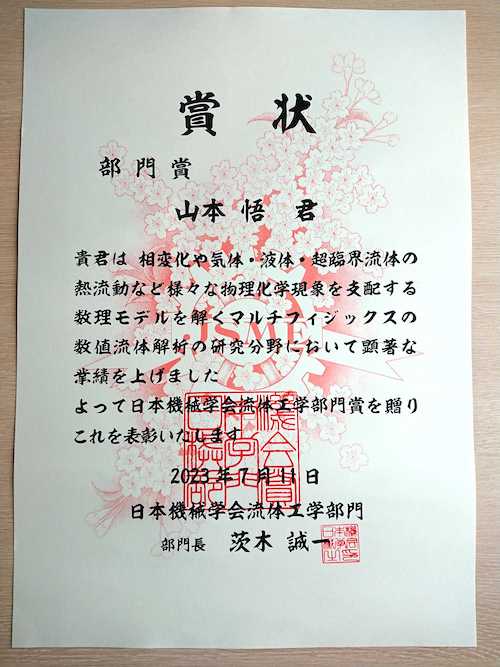 賞 状
部門賞
山本 悟 君
貴君は 相変化や気体・液体・超臨界流体の
熱流動など様々な物理化学現象を支配する
数理モデルを解くマルチフィジックスの
数値流体解析の研究分野において顕著な
業績を上げました
よって日本機械学会流体工学部門賞を贈り
これを表彰いたします
2023年7月11日
日本機械学会流体工学部門
部門長 茨木 誠一
JSME